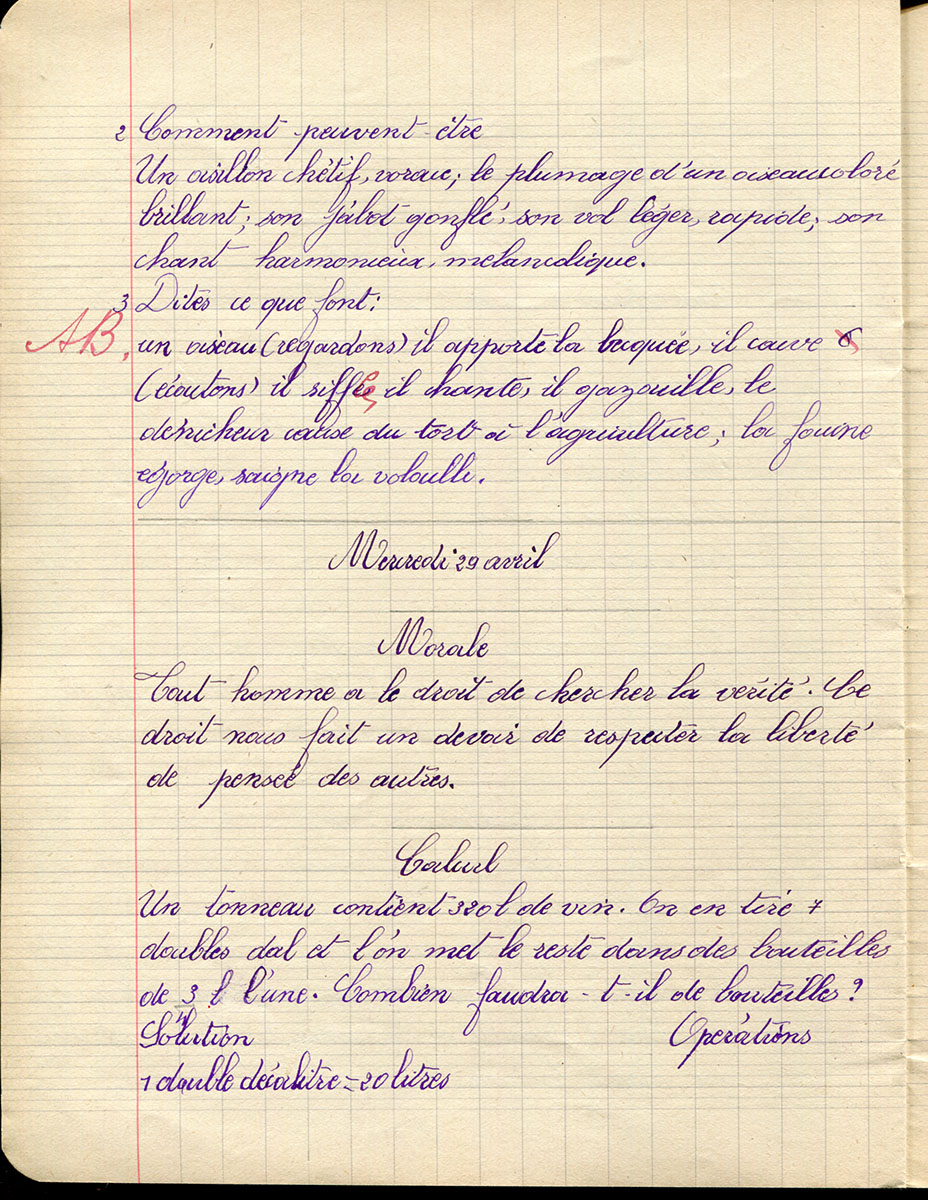 2 Comment peuvent-être
Un oisillon chétif, vorace; le plumage d'un oiseau coloré
brillant; son jabot gonflé; son vol léger, rapide; son
chant harmonieux, melancolique.
3 Dites ce que font:
AB. un oiseau (regardons) il apporte la becquée, il couve
(écoutons) il siffle il chante, il gazouille, le
dénicheur cause du tort à l'agriculture; la fouine
egorge, saigne la volaille.
Mercredi 29 avril
Morale
Tout homme a le droit de chercher la vérité. Ce
droit nous fait un devoir de respecter la liberté
de penseé des autres.
Calcul
Un tonneau contient 320 l de vin. On en tire 7
doubles dal et l'on met le reste dans des bouteilles
de 3/4 l l'une. Combien faudra-t-il de bouteilles?
Solution Opérations
1 double décalitre = 20 litres